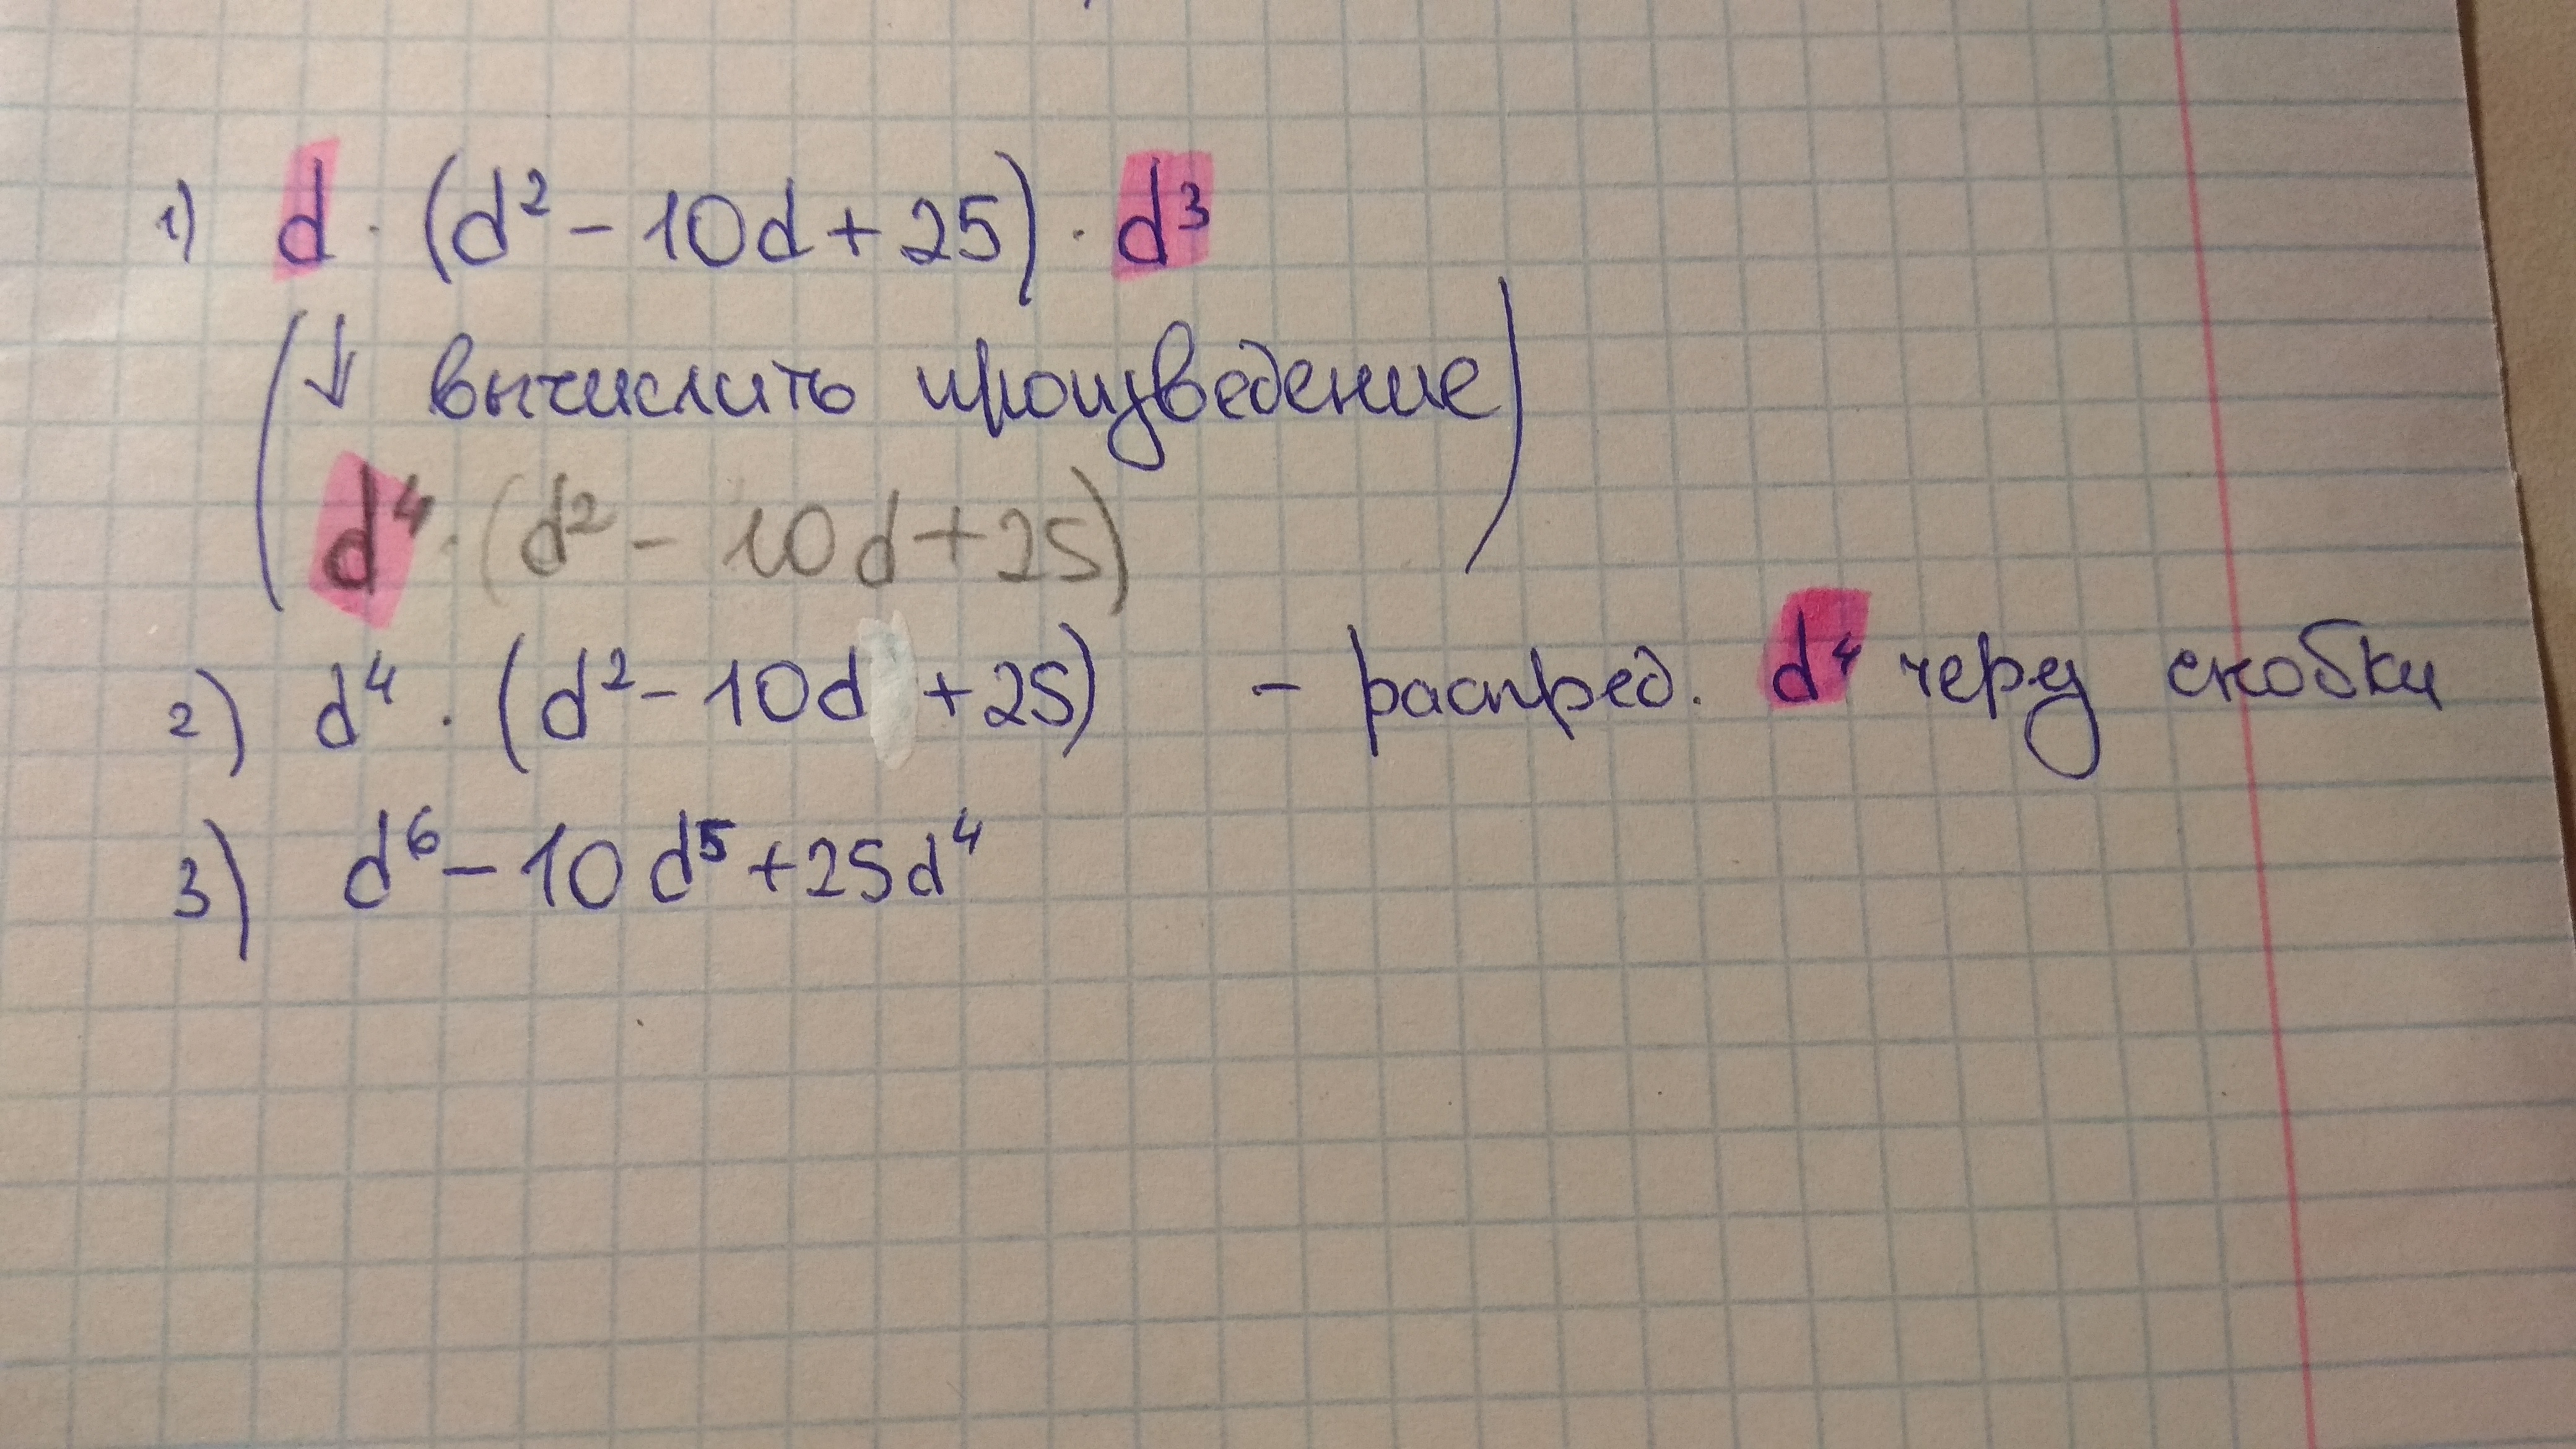 1) d · (d² - 10d + 25) · d³
(↓ вычислить произведение)
d⁴ · (d² - 10d + 25)
2) d⁴ · (d² - 10d + 25) - распред. d⁴ через скобки
3) d⁶ - 10d⁵ + 25d⁴